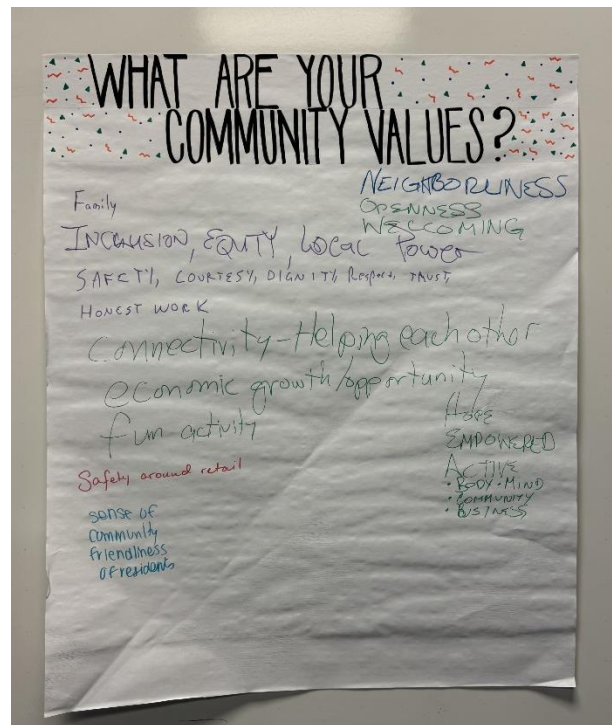 WHAT ARE YOUR
COMMUNITY VALUES?
Family
NEIGHBORLINESS
OPENNESS
WELCOMING
INCLUSION, EQUITY, LOCAL POWER
SAFETY, COURTESY, DIGNITY, Respect, TRUST,
HONEST WORK
Connectivity - Helping each other
economic growth/opportunity
fun activity
HOPE
EMPOWERED
ACTIVE
• BODY • MIND
• COMMUNITY
• BUSINESS
Safety around retail
sense of
community
friendliness
of residents